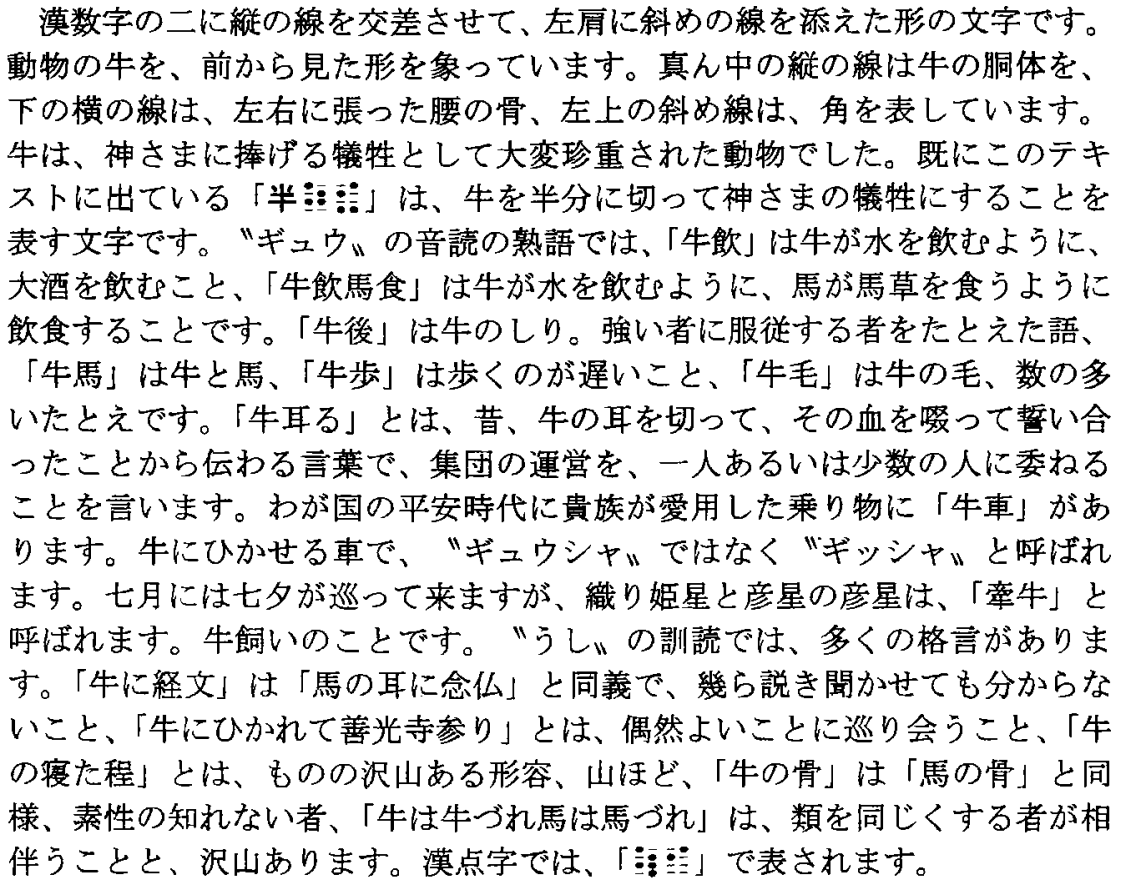 漢数字の二に縦の線を交差させて、左肩に斜めの線を添えた形の文字です。
動物の牛を、前から見た形を象っています。真ん中の縦の線は牛の胴体を、
下の横の線は、左右に張った腰の骨、左上の斜め線は、角を表しています。
牛は、神さまに捧げる犠牲として大変珍重された動物でした。既にこのテキ
ストに出ている「半」は、牛を半分に切って神さまの犠牲にすることを
表す文字です。〝ギュウ〟の音読の熟語では、「牛飲」は牛が水を飲むように、
大酒を飲むこと、「牛飲馬食」は牛が水を飲むように、馬が馬草を食うように
飲食することです。「牛後」は牛のしり。強い者に服従する者をたとえた語、
「牛馬」は牛と馬、「牛歩」は歩くのが遅いこと、「牛毛」は牛の毛、数の多
いたとえです。「牛耳る」とは、昔、牛の耳を切って、その血を啜って誓い合
ったことから伝わる言葉で、集団の運営を、一人あるいは少数の人に委ねる
ことを言います。わが国の平安時代に貴族が愛用した乗り物に「牛車」があ
ります。牛にひかせる車で、〝ギュウシャ〟ではなく〝ギッシャ〟と呼ばれ
ます。七月には七夕が巡って来ますが、織り姫星と彦星の彦星は、「牽牛」と
呼ばれます。牛飼いのことです。〝うし〟の訓読では、多くの格言がありま
す。「牛に経文」は「馬の耳に念仏」と同義で、幾ら説き聞かせても分からな
いこと、「牛にひかれて善光寺参り」とは、偶然よいことに巡り会うこと、「牛
の寝た程」とは、ものの沢山ある形容、山ほど、「牛の骨」は「馬の骨」と同
様、素性の知れない者、「牛は牛づれ馬は馬づれ」は、類を同じくする者が相
伴うことと、沢山あります。漢点字では、「」で表されます。